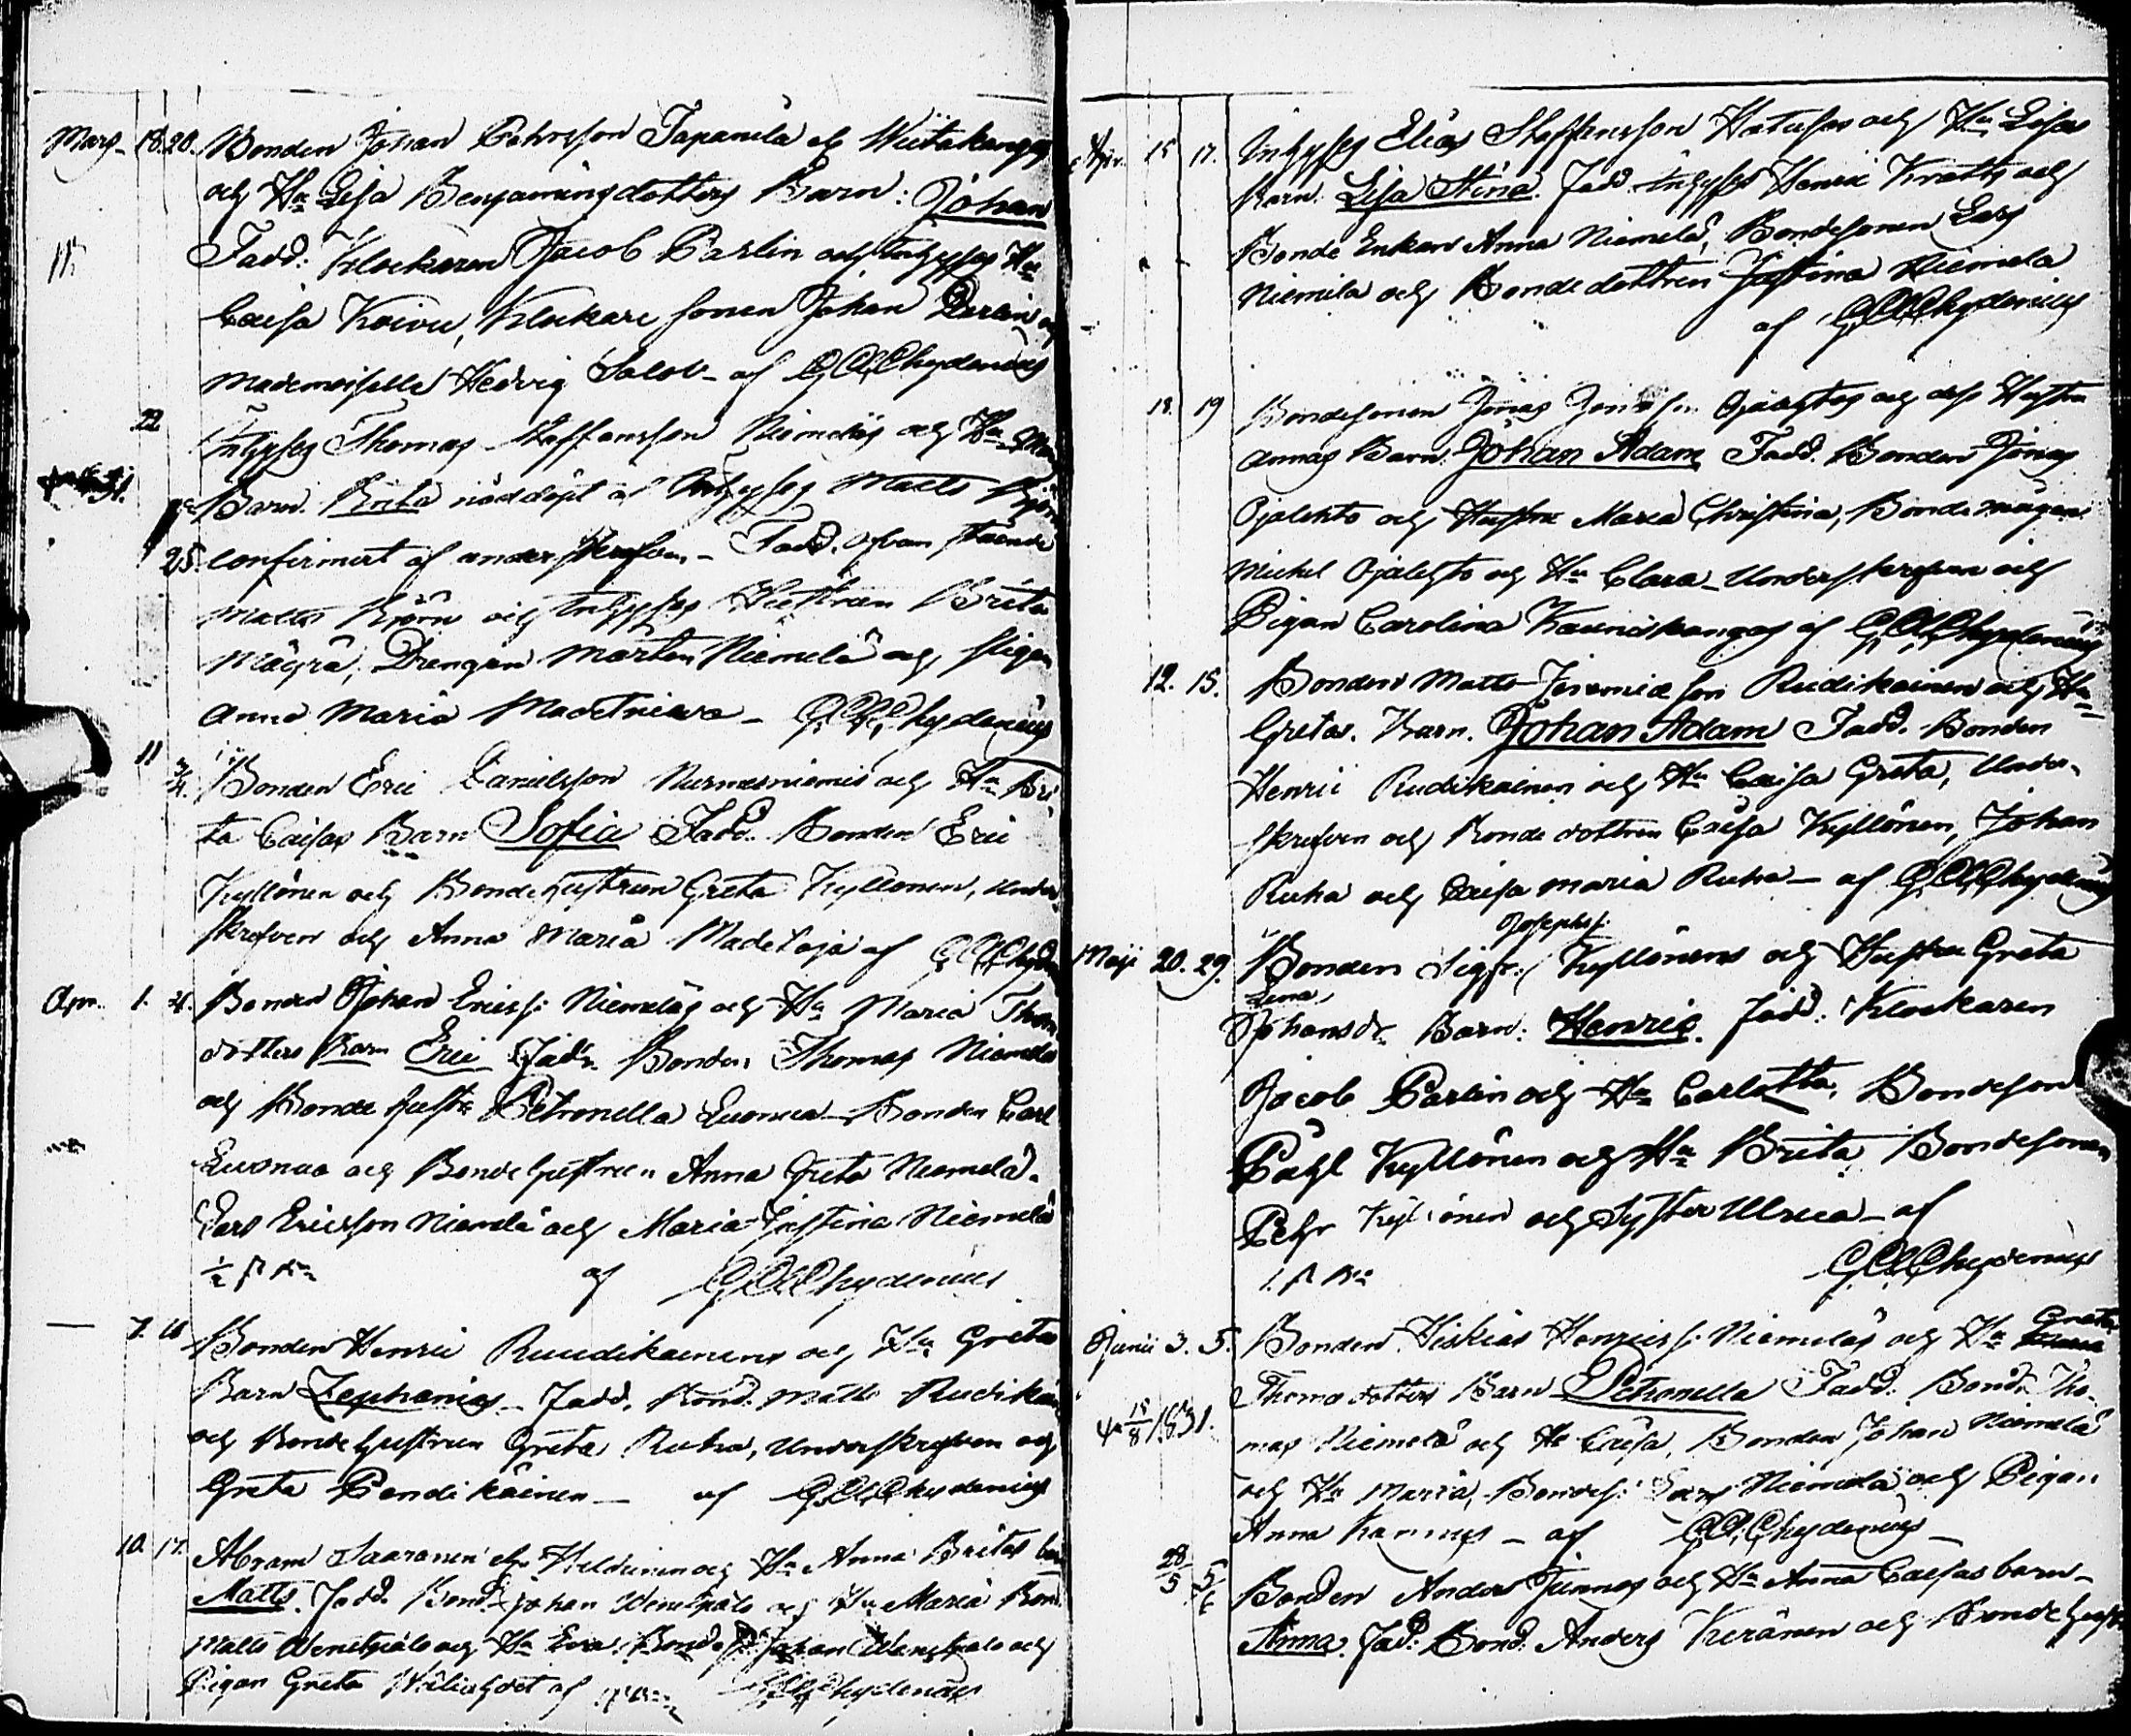 Mars 18. 20. Bonden Johan Pehrsson Tapanila el Wiitakangas
och Hu Lisa Benjaminsdotters Barn: Johan
Fadd: Klockaren Jacob Parlin och Inhyses Hu
Caisa Koivu, Klockare sonen Johan Parlin och
Mademoiselle Hedvig Salov - af G.A.Chydenius
22 Inhyses Thomas Staffansson Niemeläs och Hu
Barn. Brita nöddöpt af Inhyses Matts Björn
25. confirmert af underskrefven - Fadd. ofvan stående
Matts Björn och Inhyses Hustrun Brita
Mägrä, Drengen Mårten Niemelä och Pigan
Anna Maria Madetniera - G.A.Chydenius
11 3/4 Bonden Eric Danielsson Nurmesniemis och Hu Bri-
ta Caisas Barn Sofia Fadd. Bonden Eric
Kyllönen och Bondehustrun Greta Kyllönen, under
skrefven och Anna Maria Madetoja af G.A.Chyde
Apr. 1. 4. Bonden Johan Ericss: Niemeläs och Hu Maria Thom
dotters Barn Eric Fadd. Bonden Thomas Niemelä
och Bonde hustr Petronella Luonua - Bonden Carl
Luonua och Bondehustrun Anna Greta Niemelä.
Lars Ericsson Niemelä och Maria Justina Niemelä
af G.A.Chydenius
7. Bonden Henric Ruudikainens och Hu Gretas
Barn Zephanias - Fadd. Bond. Matts Rudikain
och Bondehustrun Greta Ruha, underskrefven och
Greta Pendikäinen - af G.A.Chydenius
10. 17. Abram Saaranen och Hu Anna Britas barn
Matts. Fadd. Bond. Johan Wenetpalo och Hu Maria Bond.
Matts Wenetpalo och Hu Eva. Bonde s: Johan Wenetpalo och
Pigan Greta af G.A.Chydenius
Apr. 15 17. Inhyses Elias Staffansson och Hu Lisas
Barn. Lisa Stina. Fadd. Inhyses Henric Kratts och
Bonde Enkan Anna Niemelä, Bondesonen Lars
Niemelä och Bondedottren Justina Niemelä
af G.A.Chydenius
18. 19 Bondesonen Jonas Jonasson Ojalehtos och dess Hustru
Annas Barn. Johan Adam Fadd. Bonden Jonas
Ojalehto och Hustru Maria Christina, Bondemågen
Michel Ojalehto och Hu Clara - Underskrefven och
Pigan Carolina Kauniskangas af G.A.Chydenius
12. 15. Bonden Matts Jeremiæson Rudikainen och Hu
Gretas. Barn. Johan Adam Fadd. Bonden
Henric Rudikainen och Hu Caisa Greta, Under-
skrefven och Bonde dottren Caisa Kyllönen, Johan
Ruha och Caisa Maria Ruha - af G.A.Chydenius
Josephss:
Maji 20. 29. Bonden Sigfr: Kyllönens och Hustru Greta
Lena
Johansdr. Barn: Henric. Fadd: Klockaren
Jacob Parlin och Hu Carlotta, Bondeson
Påhl Kyllönen och Hu Brita Bondesonen
Pehr Kyllönen och Syster Ulrica - af
G.A.Chydenius
Junii 3. 5. Bonden Hiskias Henricss: Niemeläs och Hu Greta
Thomædotters Barn Petronella Fadd. Bond. Tho-
15/8 1831. mas Niemelä och Hu Caisa, Bonden Johan Niemelä
och Hu Maria, Bondes: Lars Niemelä och Pigan
Anna Kannus - af G.A.Chydenius
28/5 5/6 Bonden Anders Junnos och Hu Anna Caisas barn -
Anna. Fad: Bond. Anders Keränen och Bondehustr